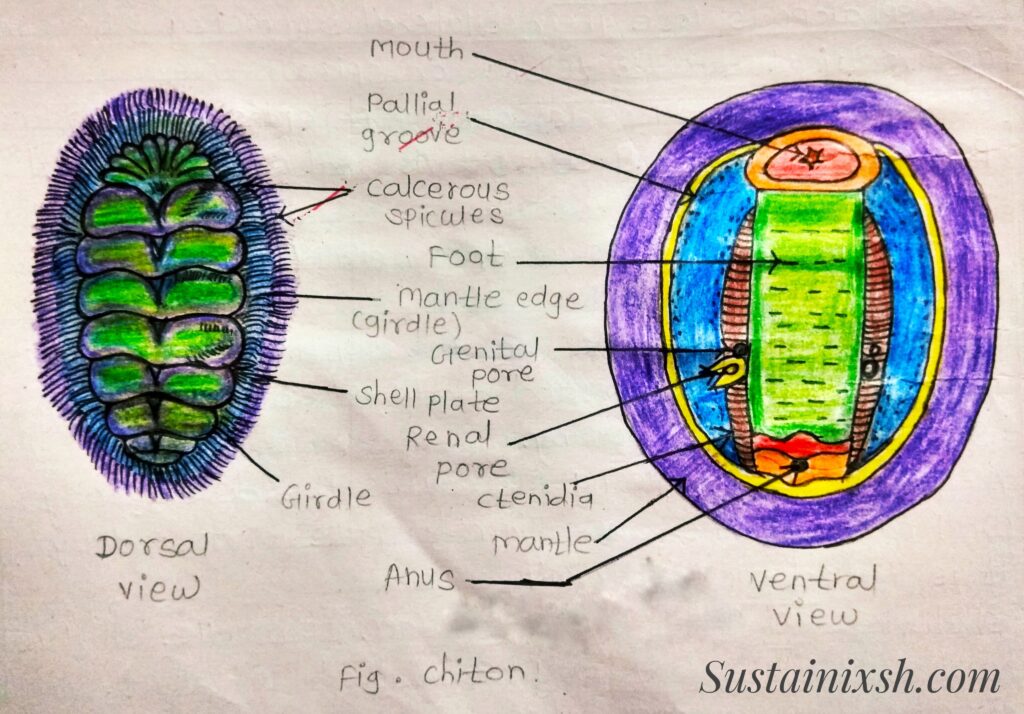 Mouth
Pallial
groove
calcerous
spicules
Foot
Mantle edge
(girdle)
Genital
pore
Shell plate
Renal
pore
Girdle
ctenidia
Mantle
Anus
Dorsal
view
Ventral
view
Fig. chiton.
Sustainixsh.com